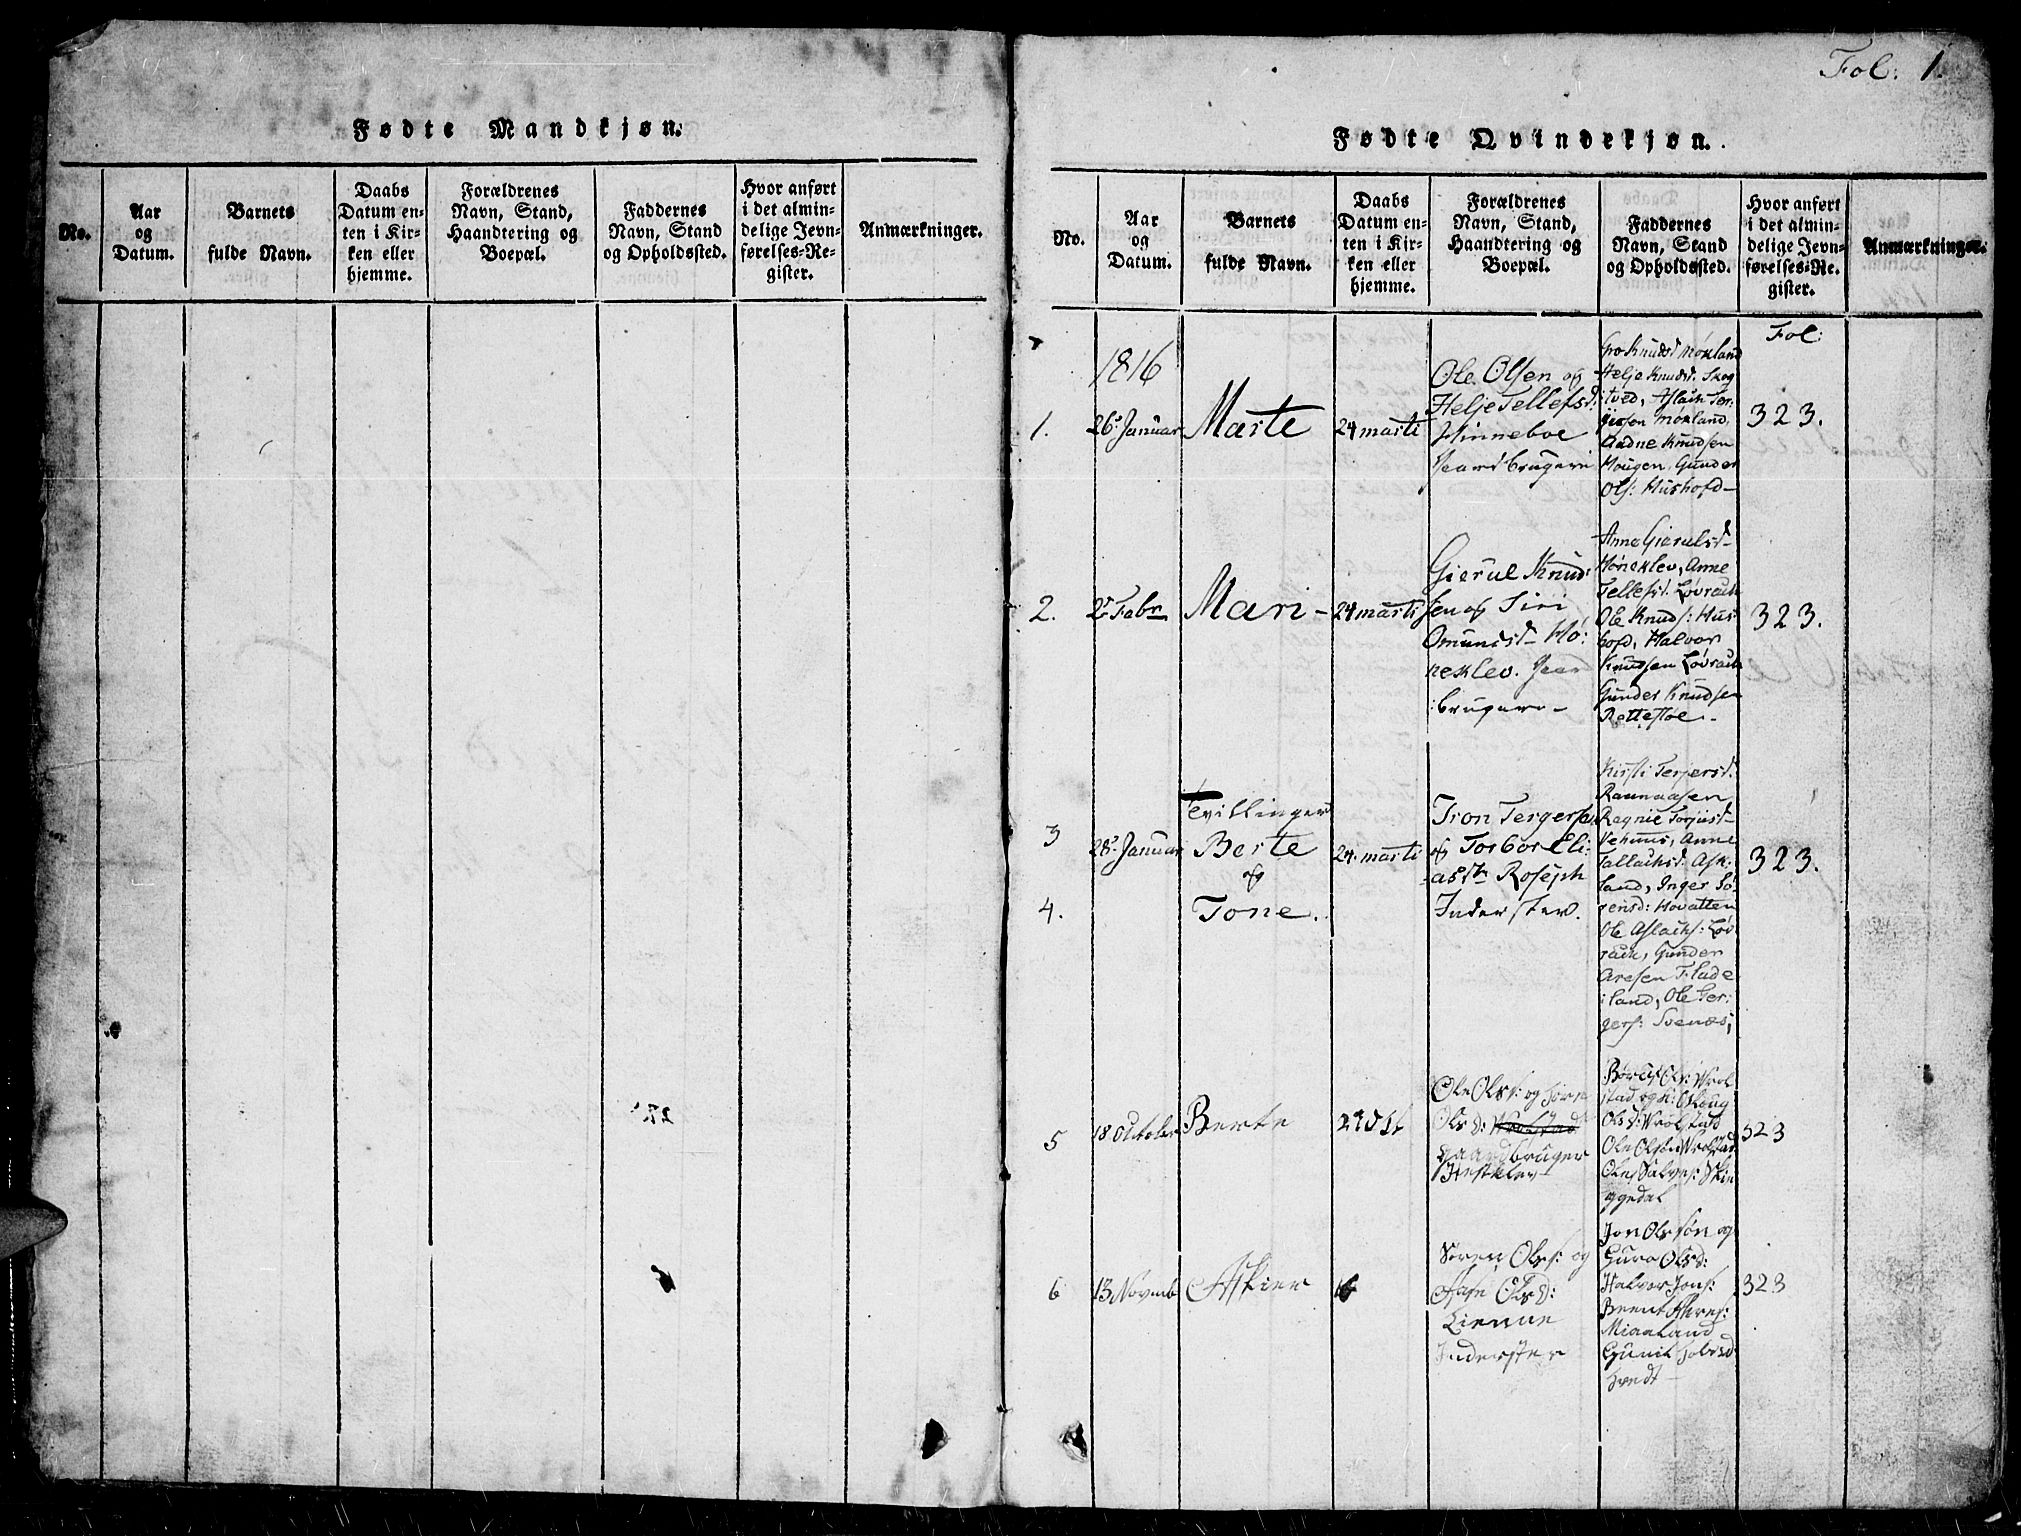 Fol: 1.
Fødte Mandkjøn.
No.
Aar
og
Datum.
Barnets
fulde Navn.
Daabs
Datum en-
ten i Kir-
ken eller
hjemme.
Forældrenes
Navn, Stand,
Haandtering og
Boepæl.
Faddernes
Navn, Stand
og Opholdssted.
Hvor anført
i det almin-
delige Jevn-
førelses-Re-
gister.
Anmærkninger.
Fødte Qvindekjøn.
No.
Aar
og
Datum.
Barnets
fulde Navn.
Daabs
Datum en-
ten i Kir-
ken eller
hjemme.
Forældrenes
Navn, Stand,
Haandtering og
Boepæl.
Faddernes
Navn, Stand
og Opholdssted.
Hvor anført
i det almin-
delige Jevn-
førelses-Re-
gister.
Anmærkninger.
Fol:
1816
1.
26de Januar
Marte
24 marti
Ole Olsen og
Helje Tellefsd:
Hinneboe
Gaardbrugere
Gro Knudsd Moxland
Helje Knudsd. Skog
tved, Aslach Ter-
jessen Moxland,
Aadne Knudsen
Hougen, Gunder
Ols: Hushofd-
323.
2.
2de Febr
Mari-
24 marti
Gierul Knud:
sen og Siri
Omundsd- Hø:
neklev. Gaard
brugere-
Anne Gierulsd-
Høneklev, Anne
Tellefsd. Løvrach
Ole Knuds: Hus
hofd, Halvor
Knudsen Løvrach
Gunder Knudsen
Rettestøe.-
323.
3
28de Januar
Tvillinger
Berte
og
4.
Tone.
24. marti
Tron Tergersen
og Torbor Eli:
asdtr Rosseph
Inderster.
Kirsti Terjersd.
Raunaasen
Ragnie Torjusd-
Vehuus, Anne
Tallachsd. Ask-
land, Inger Sø-
rensd: Hovatten
Ole Aslachs: Løv
rach, Gunder
Aresen Flade
iland, Ole Ter:
gers: Svenæs;
323.
5
18 October
Berte
27 dit
Ole Olss: og
Olsd: Vrolstad
gaardbruger
Hestklev
Ols: Vrol
stad og
Olsd: Vrolstad
Ole Olsøn Vrolstad
Ole Salves: Skie
ggedal
323
6
13 Novemb
Askier
Søren Olss: og
Aase Olsd:
Lienne
Inderster
Jon Olssøn og
Guro Olsd:
Halvor Jons:
Berent
Mianland
Gunil
323